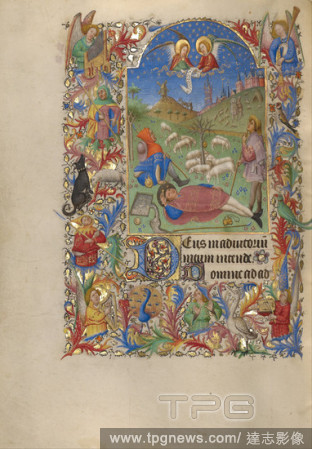 Deus in adiutoriū
meum intende
Domine ad ad
TPG
www.tpgnews.com/達志影像